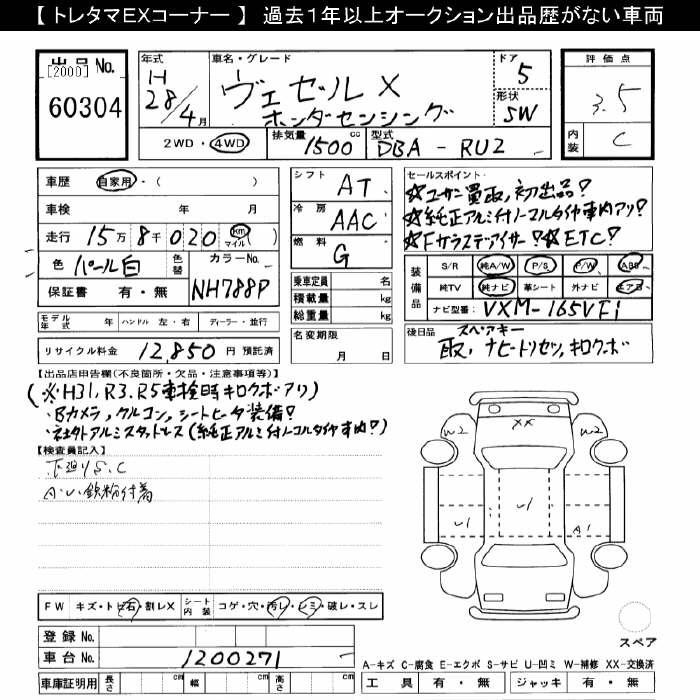 【 トレタマEXコーナー 】 過去1年以上オークション出品歴がない車両
出品No.
[2000]
60304
年式
H
28/4月
車名・グレード
ヴェゼル X
ホンダセンシング
ドア
5
形状
SW
2WD・4WD
排気量
1500 cc
型式
DBA - RU2
評価点
3.5
内装
C
車歴 自家用・( )
車検 年 月
走行 15万8千020 km マイル ( )
色 パール白
色替
カラーNo.
NH788P
保証書 有・無
シフト AT
冷房 AAC
燃料 G
乗車定員 名
積載量 kg
総重量 kg
セールスポイント
☆ユーザー買取,初出品!
☆純正アルミ付ノーマルタイヤ車内アリ!
☆Fガラスデアイサー!☆ETC!
装備品
S/R 純A/W P/S P/W ABS
純TV 純ナビ 革シート 外ナビ エアB
ナビ型番: VXM-165VFi
モデル年式 年 ハンドル 左・右 ディーラー・並行
リサイクル料金 12,850 円 預託済
名変期限
月 日
後日品 スペアキー
取,ナビードリセツ,キロクボ
【出品店申告欄(不良箇所・欠品・注意事項等)】
(※H31,R3,R5車検時キロクボアリ)
・Bカメラ,クルコン,シートヒータ装備!
・社外アルミスタッドレス(純正アルミ付ノーマルタイヤ車内!)
【検査員記入】
下廻りS,C
A・U 鉄粉付着
XX
W2
W2
U1
U1
A1
FW キズ・トビ石・割レX
シート内装 コゲ・穴・汚レ・シミ・破レ・スレ
登録No.
車台No. 1200271
車庫証明用 長さ cm 幅 cm 高さ cm
スペア
A-キズ C-腐食 E-エクボ S-サビ U-凹ミ W-補修 XX-交換済
工具 有・無 ジャッキ 有・無